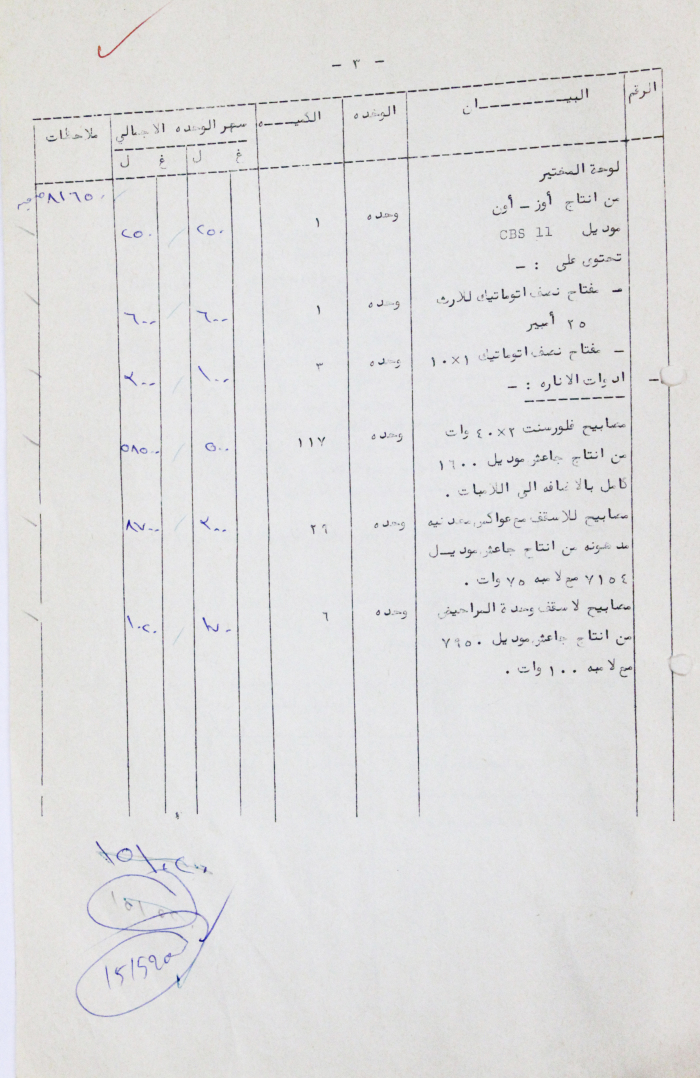 - ٣ -
الرقم البيـــــــــان الوحده الكميـــــه سعر الوحده الاجمالي ملاحظات
غ ل غ ل
لوحة المختبر
٨١٦٥٠
من انتاج أوز - أون
موديل CBS 11 وحده ١ ٢٥٠ ٢٥٠
تحتوى على : -
- مفتاح نصف اتوماتيك للارث وحده ١ ٦٠٠ ٦٠٠
٢٥ أمبير
- مفتاح نصف اتوماتيك ١×١٠ وحده ٣ ١٠٠ ٣٠٠
- ادوات الاناره : -
مصابيح فلورسنت ٢×٤٠ وات وحده ١١٧ ٥٠٠ ٥٨٥٠٠
من انتاج جاعثر موديل ١٦٠٠
كامل بالاضافه الى اللامبات .
مصابيح للاسقف مع عواكس معدنيه وحده ٢٩ ٣٠٠ ٨٧٠٠
مدهونه من انتاج جاعثر موديـل
٧١٥٤ مع لامبه ٧٥ وات .
مصابيح لاسقف وحدة المراحيض وحده ٦ ١٧٠ ١٠٢٠
من انتاج جاعثر موديل ٧٩٥٠
مع لامبه ١٠٠ وات .